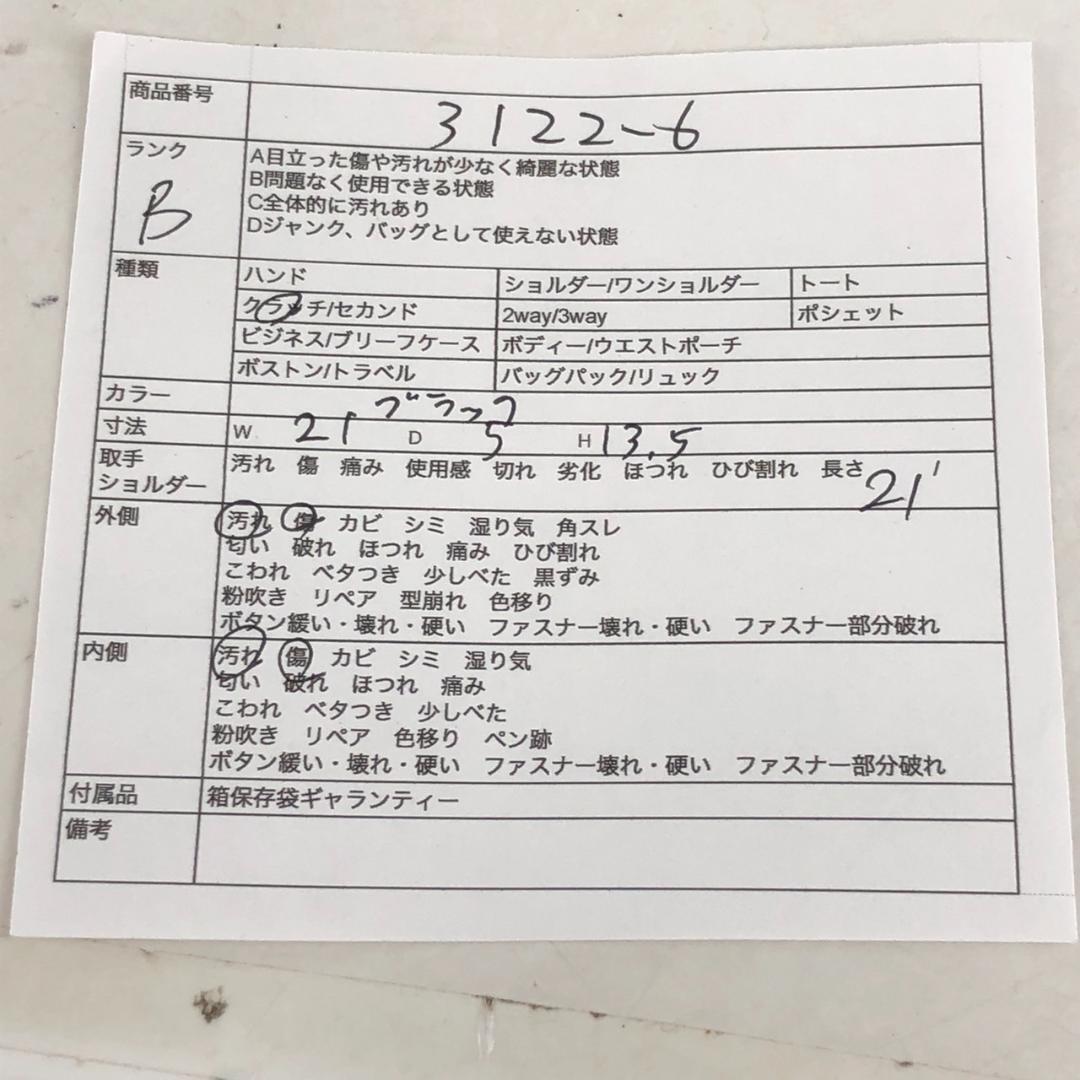 商品番号 3122-6
ランク B
A目立った傷や汚れが少なく綺麗な状態
B問題なく使用できる状態
C全体的に汚れあり
Dジャンク、バッグとして使えない状態
種類
ハンド ショルダー/ワンショルダー トート
クラッチ/セカンド 2way/3way ポシェット
ビジネス/ブリーフケース ボディー/ウエストポーチ
ボストン/トラベル バッグパック/リュック
カラー ブラック
寸法 W 21 D 5 H 13.5
取手 汚れ 傷 痛み 使用感 切れ 劣化 ほつれ ひび割れ 長さ 21
ショルダー
外側 汚れ 傷 カビ シミ 湿り気 角スレ
匂い 破れ ほつれ 痛み ひび割れ
こわれ ベタつき 少しべた 黒ずみ
粉吹き リペア 型崩れ 色移り
ボタン緩い・壊れ・硬い ファスナー壊れ・硬い ファスナー部分破れ
内側 汚れ 傷 カビ シミ 湿り気
匂い 破れ ほつれ 痛み
こわれ ベタつき 少しべた
粉吹き リペア 色移り ペン跡
ボタン緩い・壊れ・硬い ファスナー壊れ・硬い ファスナー部分破れ
付属品 箱保存袋ギャランティー
備考